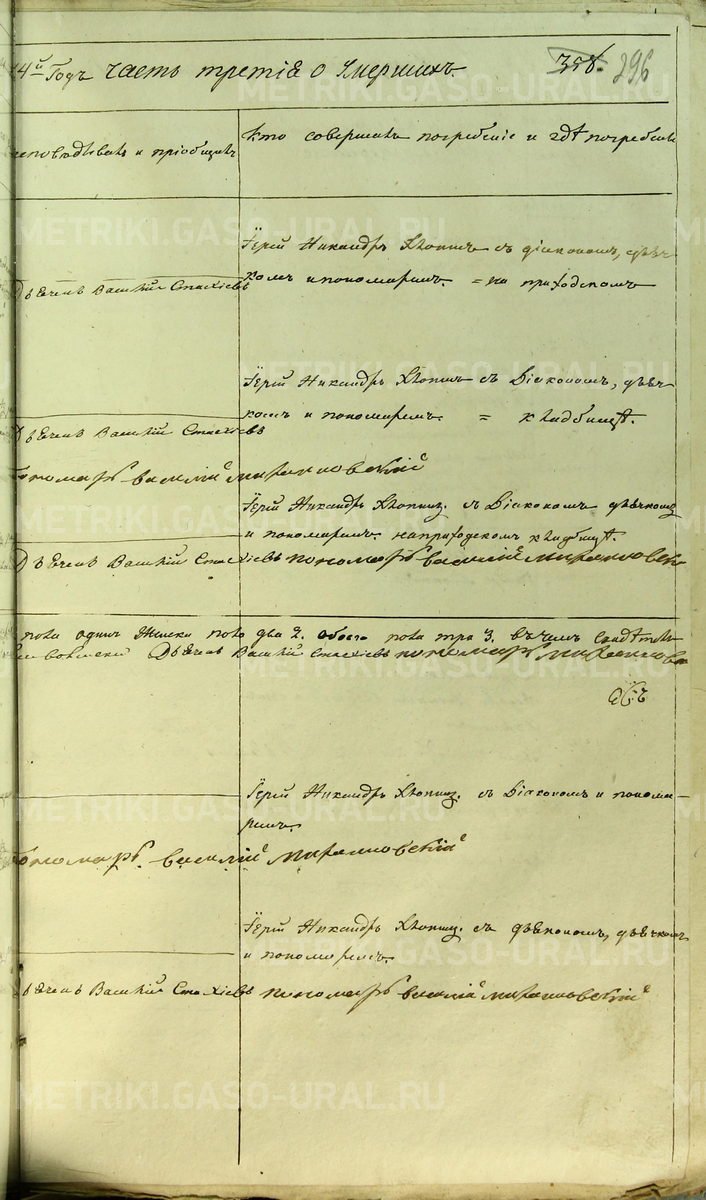 4й Годъ часть третія о Умершихъ. 358. 296
исповѣдывалъ и пріобщилъ
Кто совершалъ погребеніе и гдѣ погребены
Іерей Никандръ Хлопинъ съ діакономъ, дьяч-
комъ и пономаремъ. = на приходскомъ
Дьячекъ Василій Спаскіевъ
Іерей Никандръ Хлопинъ съ Діакономъ, дьяч-
комъ и пономаремъ. = кладбищѣ.
Дьячекъ Василій Спаскіевъ
Пономарь василій
Іерей Никандръ Хлопинъ съ Діакономъ дьячкомъ
и пономаремъ на приходскомъ кладбищѣ.
Дьячекъ Василій Спаскіевъ пономарь василій
пола одинъ Женска пола два 2. обоего пола три 3. въ чемъ
Дьячекъ Василій Спаскіевъ пономарь
Іерей Никандръ Хлопинъ съ Діакономъ и понома-
ремъ.
Пономарь василій
Іерей Никандръ Хлопинъ съ діакономъ, дьячкомъ
и пономаремъ.
дьячекъ Василій Спаскіевъ пономарь василій
METRIKI.GASO-URAL.RU